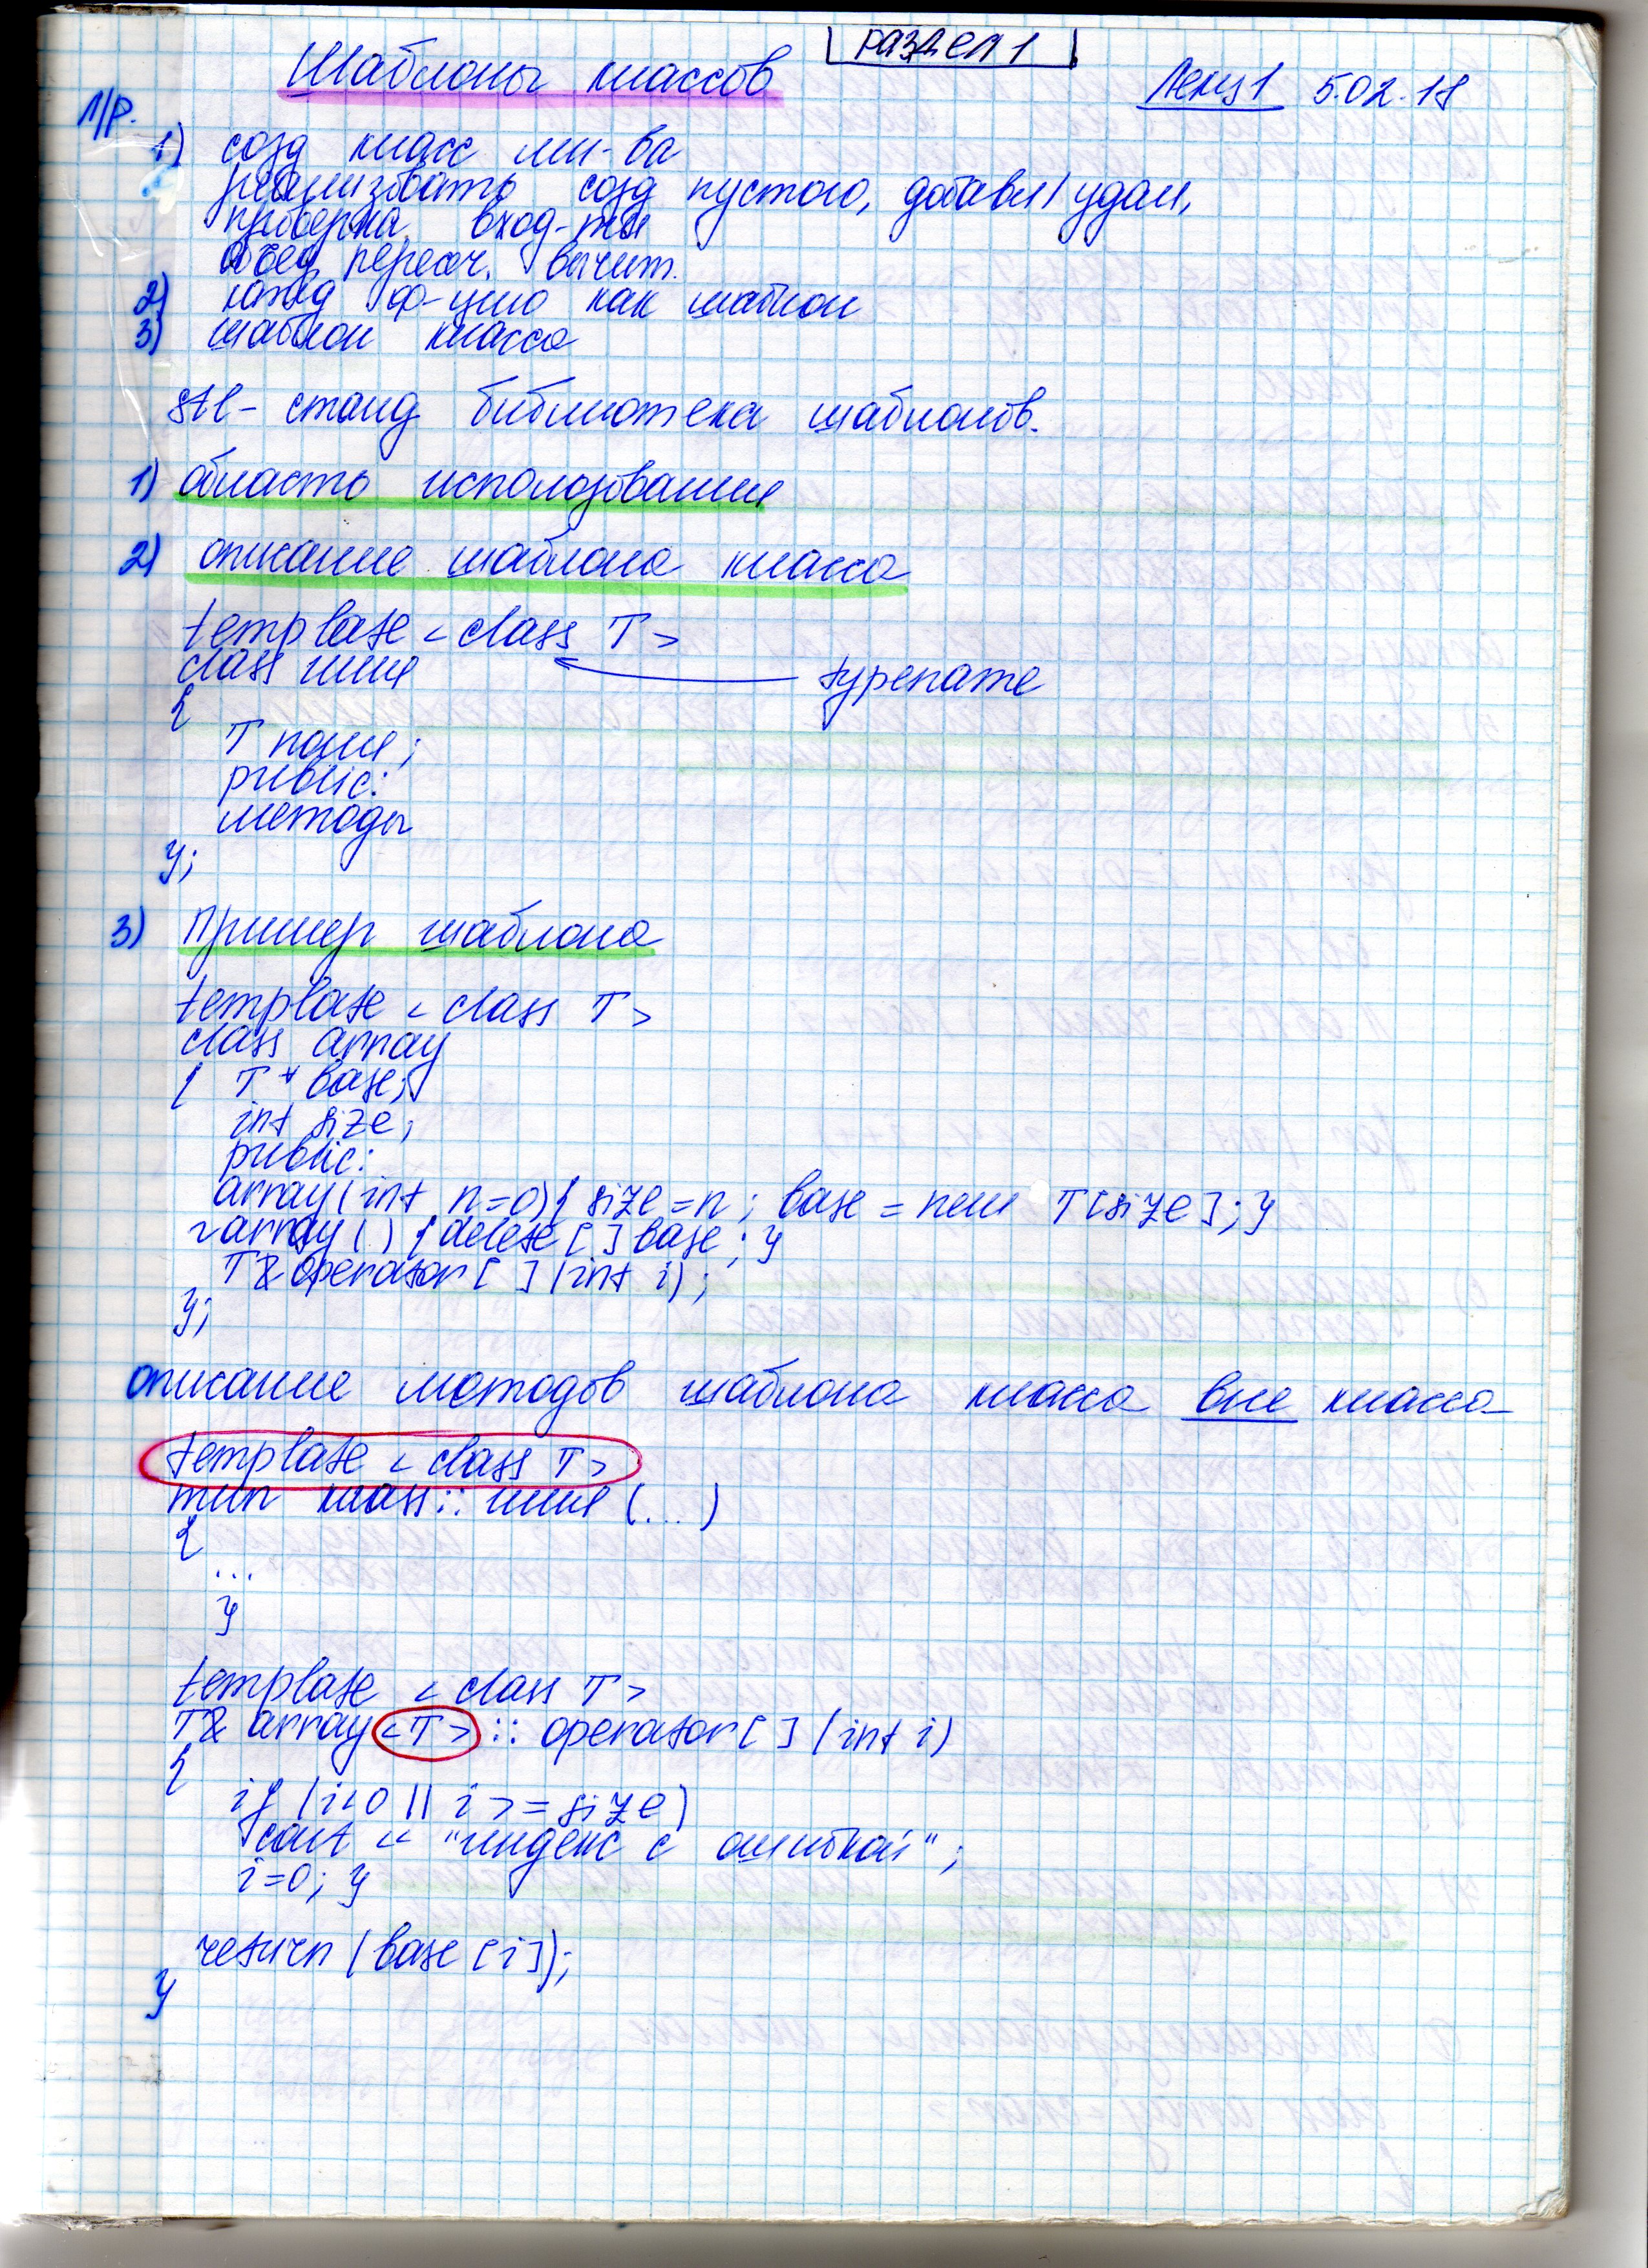 раздел 1
Шаблоны классов
Лекц 1 5.02.18
Л/р.
1) созд класс мн-ва
реализовать созд пустого, добавл/удал,
проверка вход-ти
объед, пересеч. вычит.
2) кажд ф-цию как шаблон
3) шаблон класса
stl - станд библиотека шаблонов.
1) область использования
2) описание шаблона класса
template < class T >
class имя
typename
{
T поля;
public:
методы
};
3) Пример шаблона
template < class T >
class array
{ T * base;
int size;
public:
array(int n=0){ size=n; base = new T[size]; }
~array() { delete [] base; }
T& operator[ ](int i);
};
описание методов шаблона класса вне класса
template < class T >
тип класс :: имя (...)
{
...
}
template < class T >
T& array <T> :: operator[ ] (int i)
{
if (i<0 || i >= size)
cout << "индекс с ошибкой";
i=0; }
return (base [i]);
}